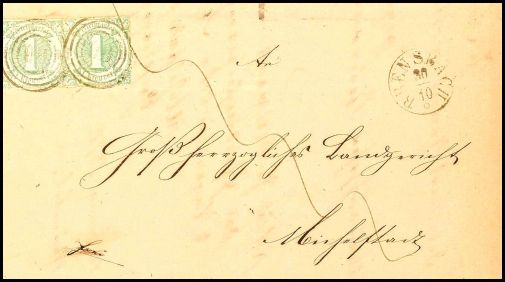 1 1
An
30
10
Großherzogliches Landgericht
Michelstadt
frei